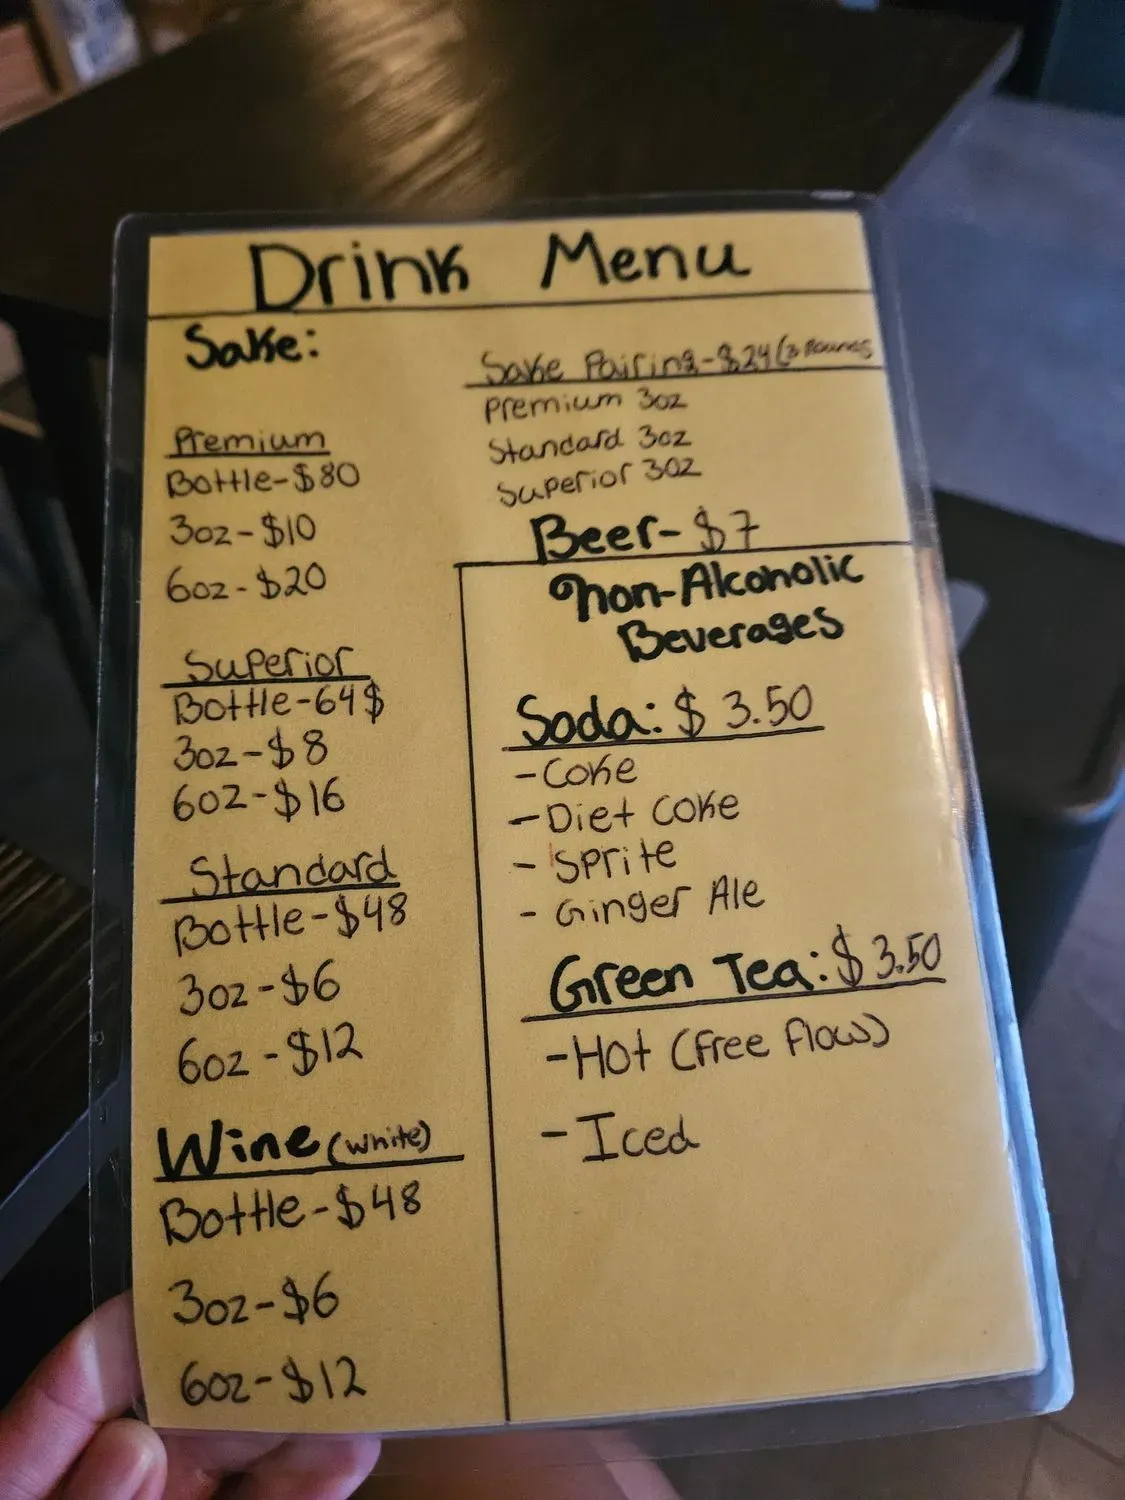 Drink Menu
Sake:
Premium
Bottle-$80
3oz-$10
6oz-$20
Superior
Bottle-64$
3oz-$8
6oz-$16
Standard
Bottle-$48
3oz-$6
6oz-$12
Wine (white)
Bottle-$48
3oz-$6
6oz-$12
Sake Pairing-$24 (3 Pours
Premium 3oz
Standard 3oz
Superior 3oz
Beer-$7
Non-Alcoholic
Beverages
Soda: $3.50
-Coke
-Diet Coke
-Sprite
-Ginger Ale
Green Tea: $3.50
-Hot (free flow)
-Iced